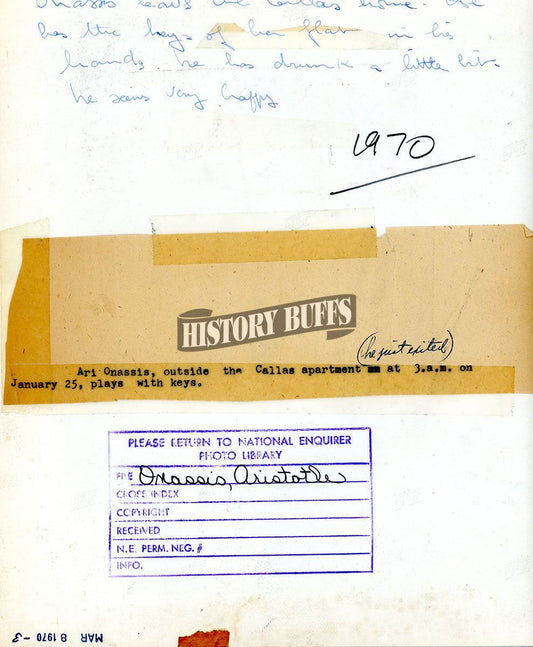 Onassis leaves the Callas home. He
has the keys of her flat in his
hands. he has drunk a little bit.
he seems very happy
1970
HISTORY BUFFS
(he just exited)
Ari Onassis, outside the Callas apartment at 3.a.m. on
January 25, plays with keys.
PLEASE RETURN TO NATIONAL ENQUIRER
PHOTO LIBRARY
FILE Onassis, Aristotle
CROSS INDEX
COPYRIGHT
RECEIVED
N.E. PERM. NEG. #
INFO.
MAR 8 1970 - 3